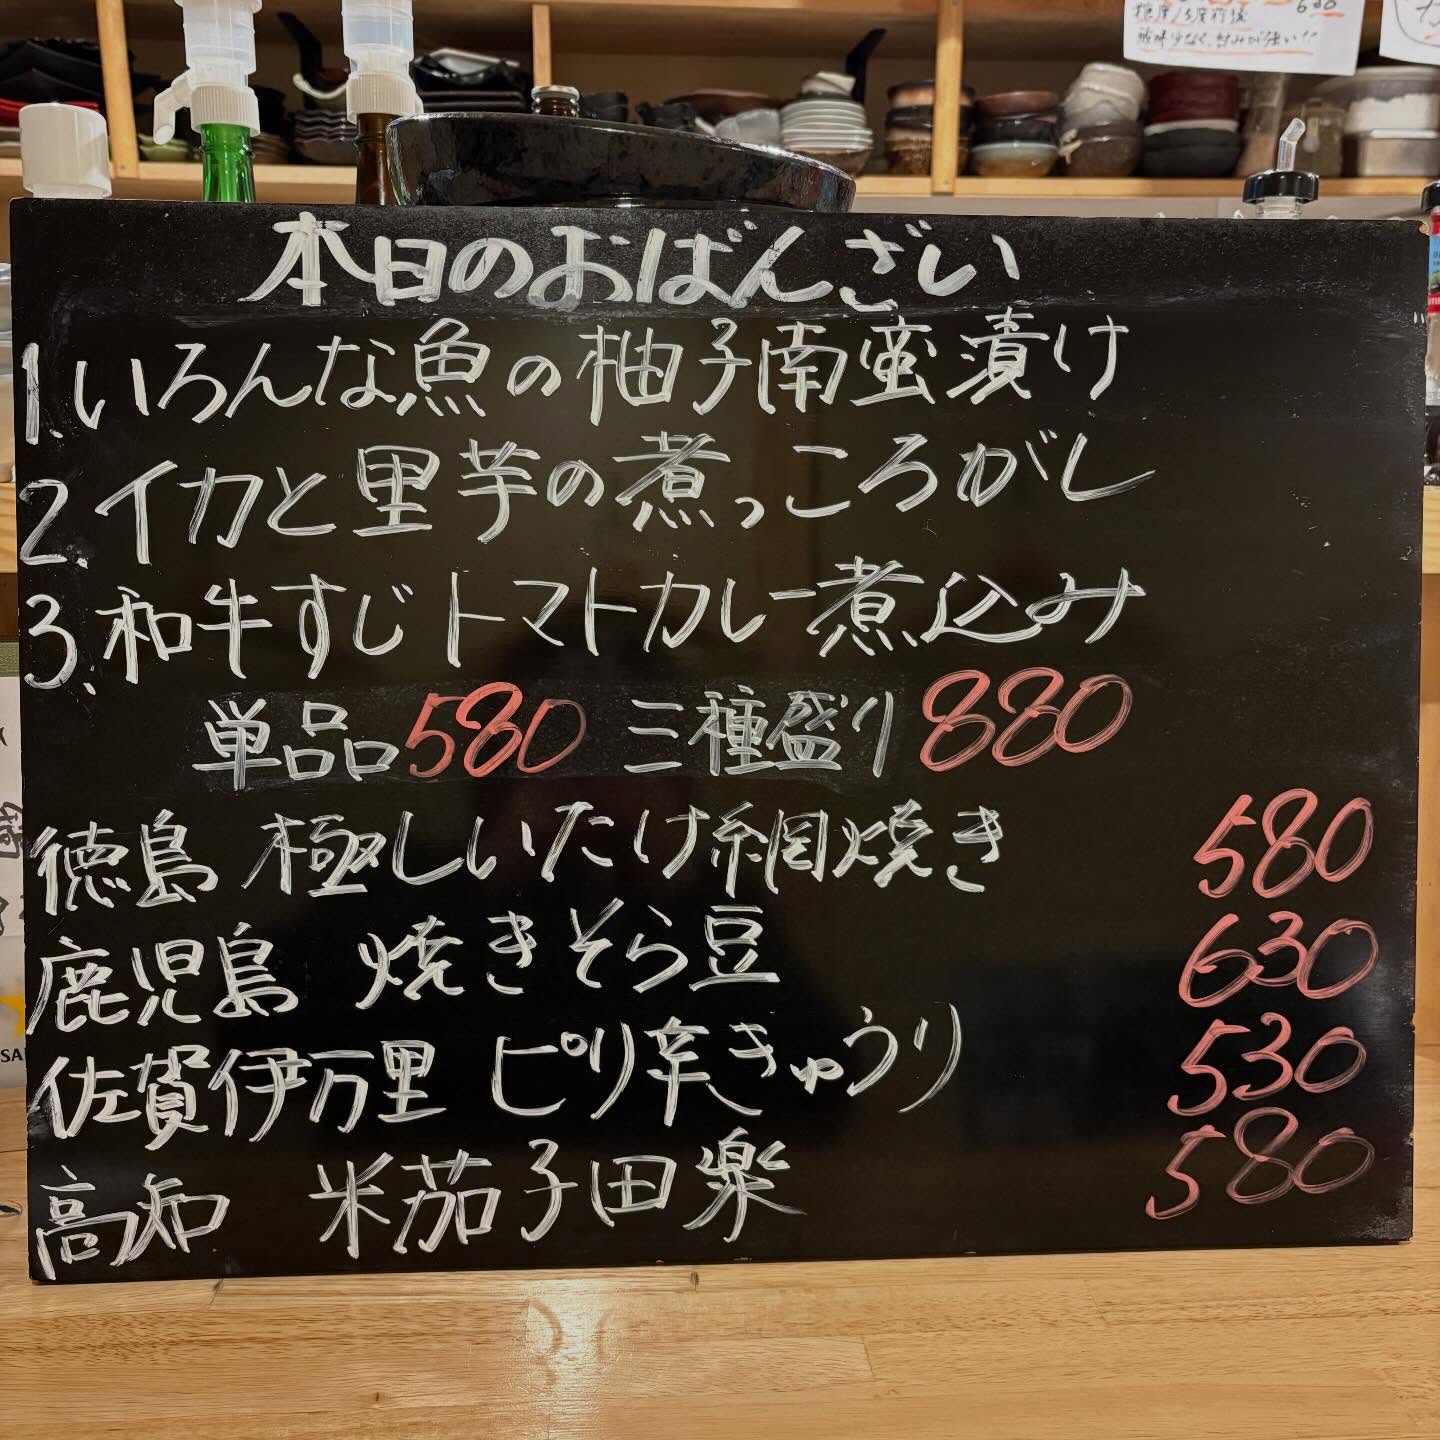 630
本日のおばんざい
1.いろんな魚の柚子南蛮漬け
2.イカと里芋の煮っころがし
3.和牛すじトマトカレー煮込み
単品580 三種盛り880
徳島 極しいたけ網焼き 580
鹿児島 焼きそら豆 630
佐賀伊万里 ピリ辛きゅうり 530
高知 米茄子田楽 580